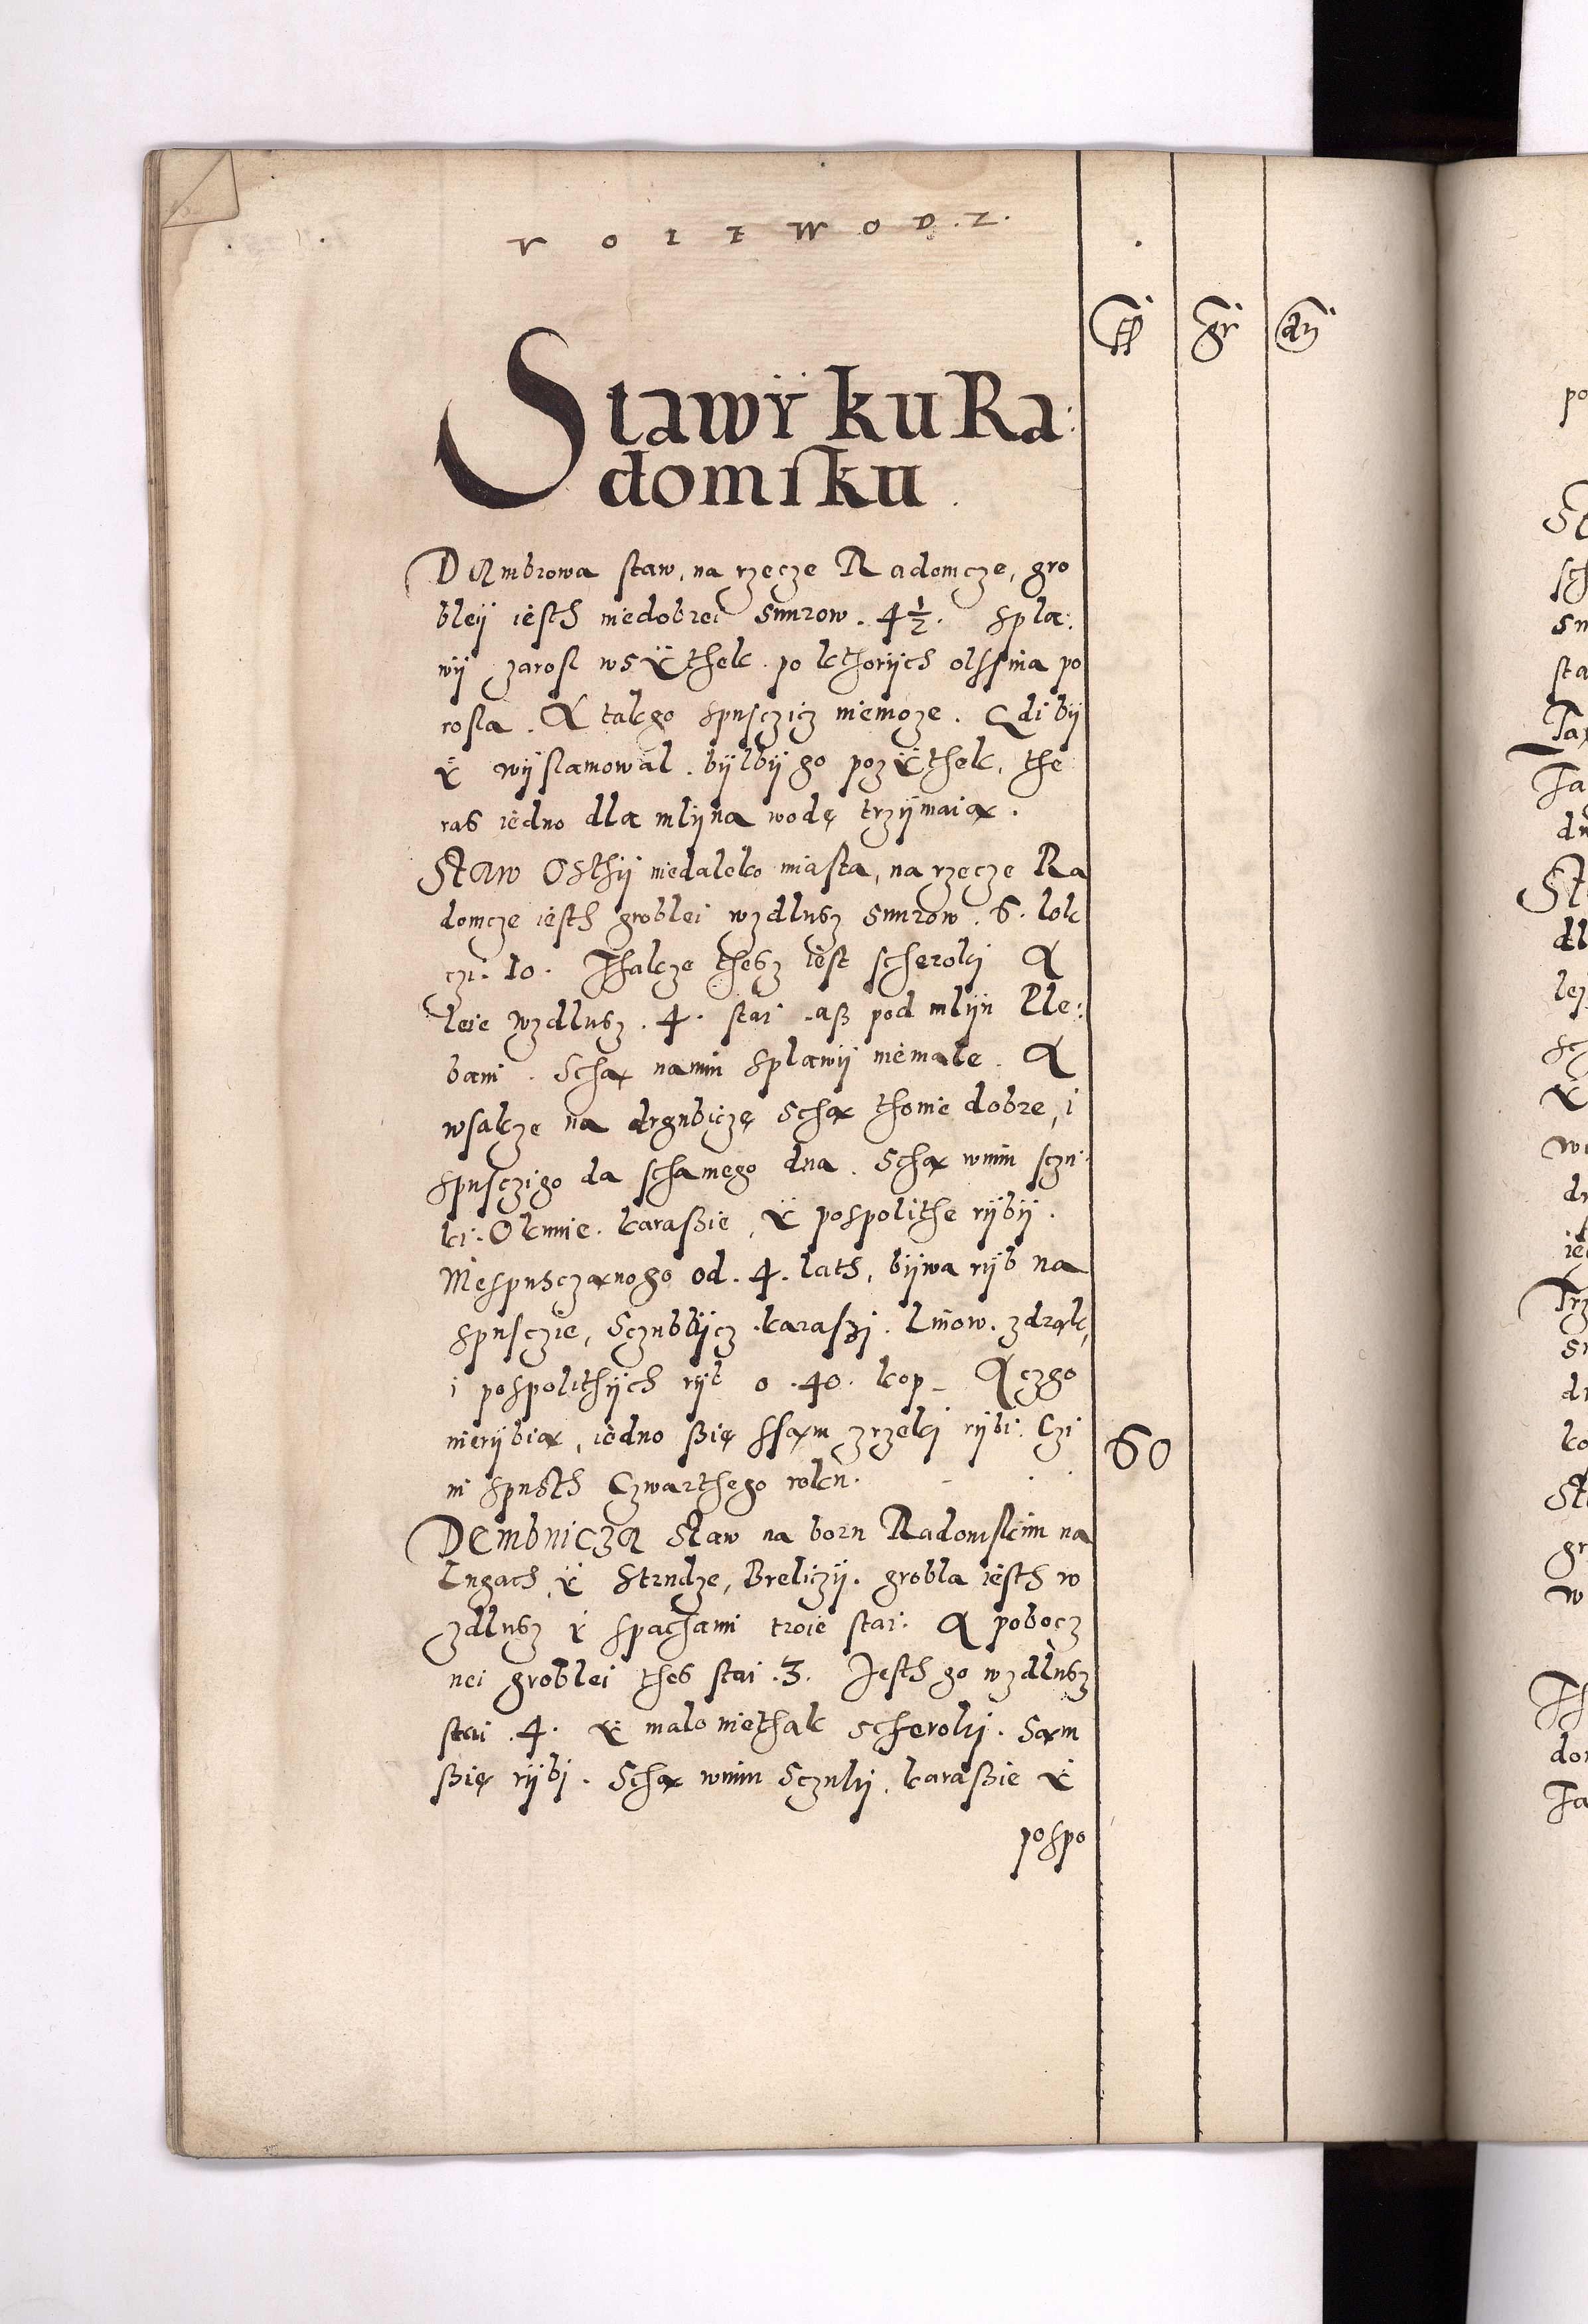 ff gr dn
Stawÿ ku Ra:
domsku
Dambrowa staw, na rzecze Radomcze, gro
bleÿ iesth niedobrei snurow. 4 1/2. Spla:
wÿ zarosl wsÿthek po kthorÿch olssina po
rosla. A tak go spusczicz niemoze. Gdi bÿ
ÿ wÿslamowal. bÿlbÿ go pozÿthek, the
ras iedno dla mlÿna wodę trzÿmaią.
Staw Osthÿ niedaleko miasta, na rzecze Ra
domcze iesth groblei wzdlusz snurow. 6. lok
czi. 10. Thakze thesz iest scheroki A
leie wzdlusz. 4. stai. aß pod mlÿn Ple:
bani. Schą namin splawÿ niemale. A
wsakze na drgubiczę schą thonie dobre, i
spusczigo da schamego dna. Schą wnim sczu
ki. Okunie. karaßie, ÿ pospolithe rÿbÿ.
Niespusczanego od. 4. lath, bÿwa rÿb na
spusczie, Sczubbÿcz. karaszi. linow. zdrąk,
i pospolithÿch rÿb o. 40. kop_ A czgo
nierÿbią, iedno ßię ssąm zrzeki rÿbi. Czi
ni spusth Czwarthego roku.
60
Dembnicza Staw na boru Radomskim na
Lugach ÿ Strudze, Breliczÿ. grobla iesth w
zdlusz ÿ spachami troie stai. A pobocz
nei groblei thes stai. 3. Jesth go wzdlusz
stai. 4. ÿ malo niethak scheroki. Sąm
ßię rÿbi. Schą wnim Sczuki, karaßie ÿ
pospo